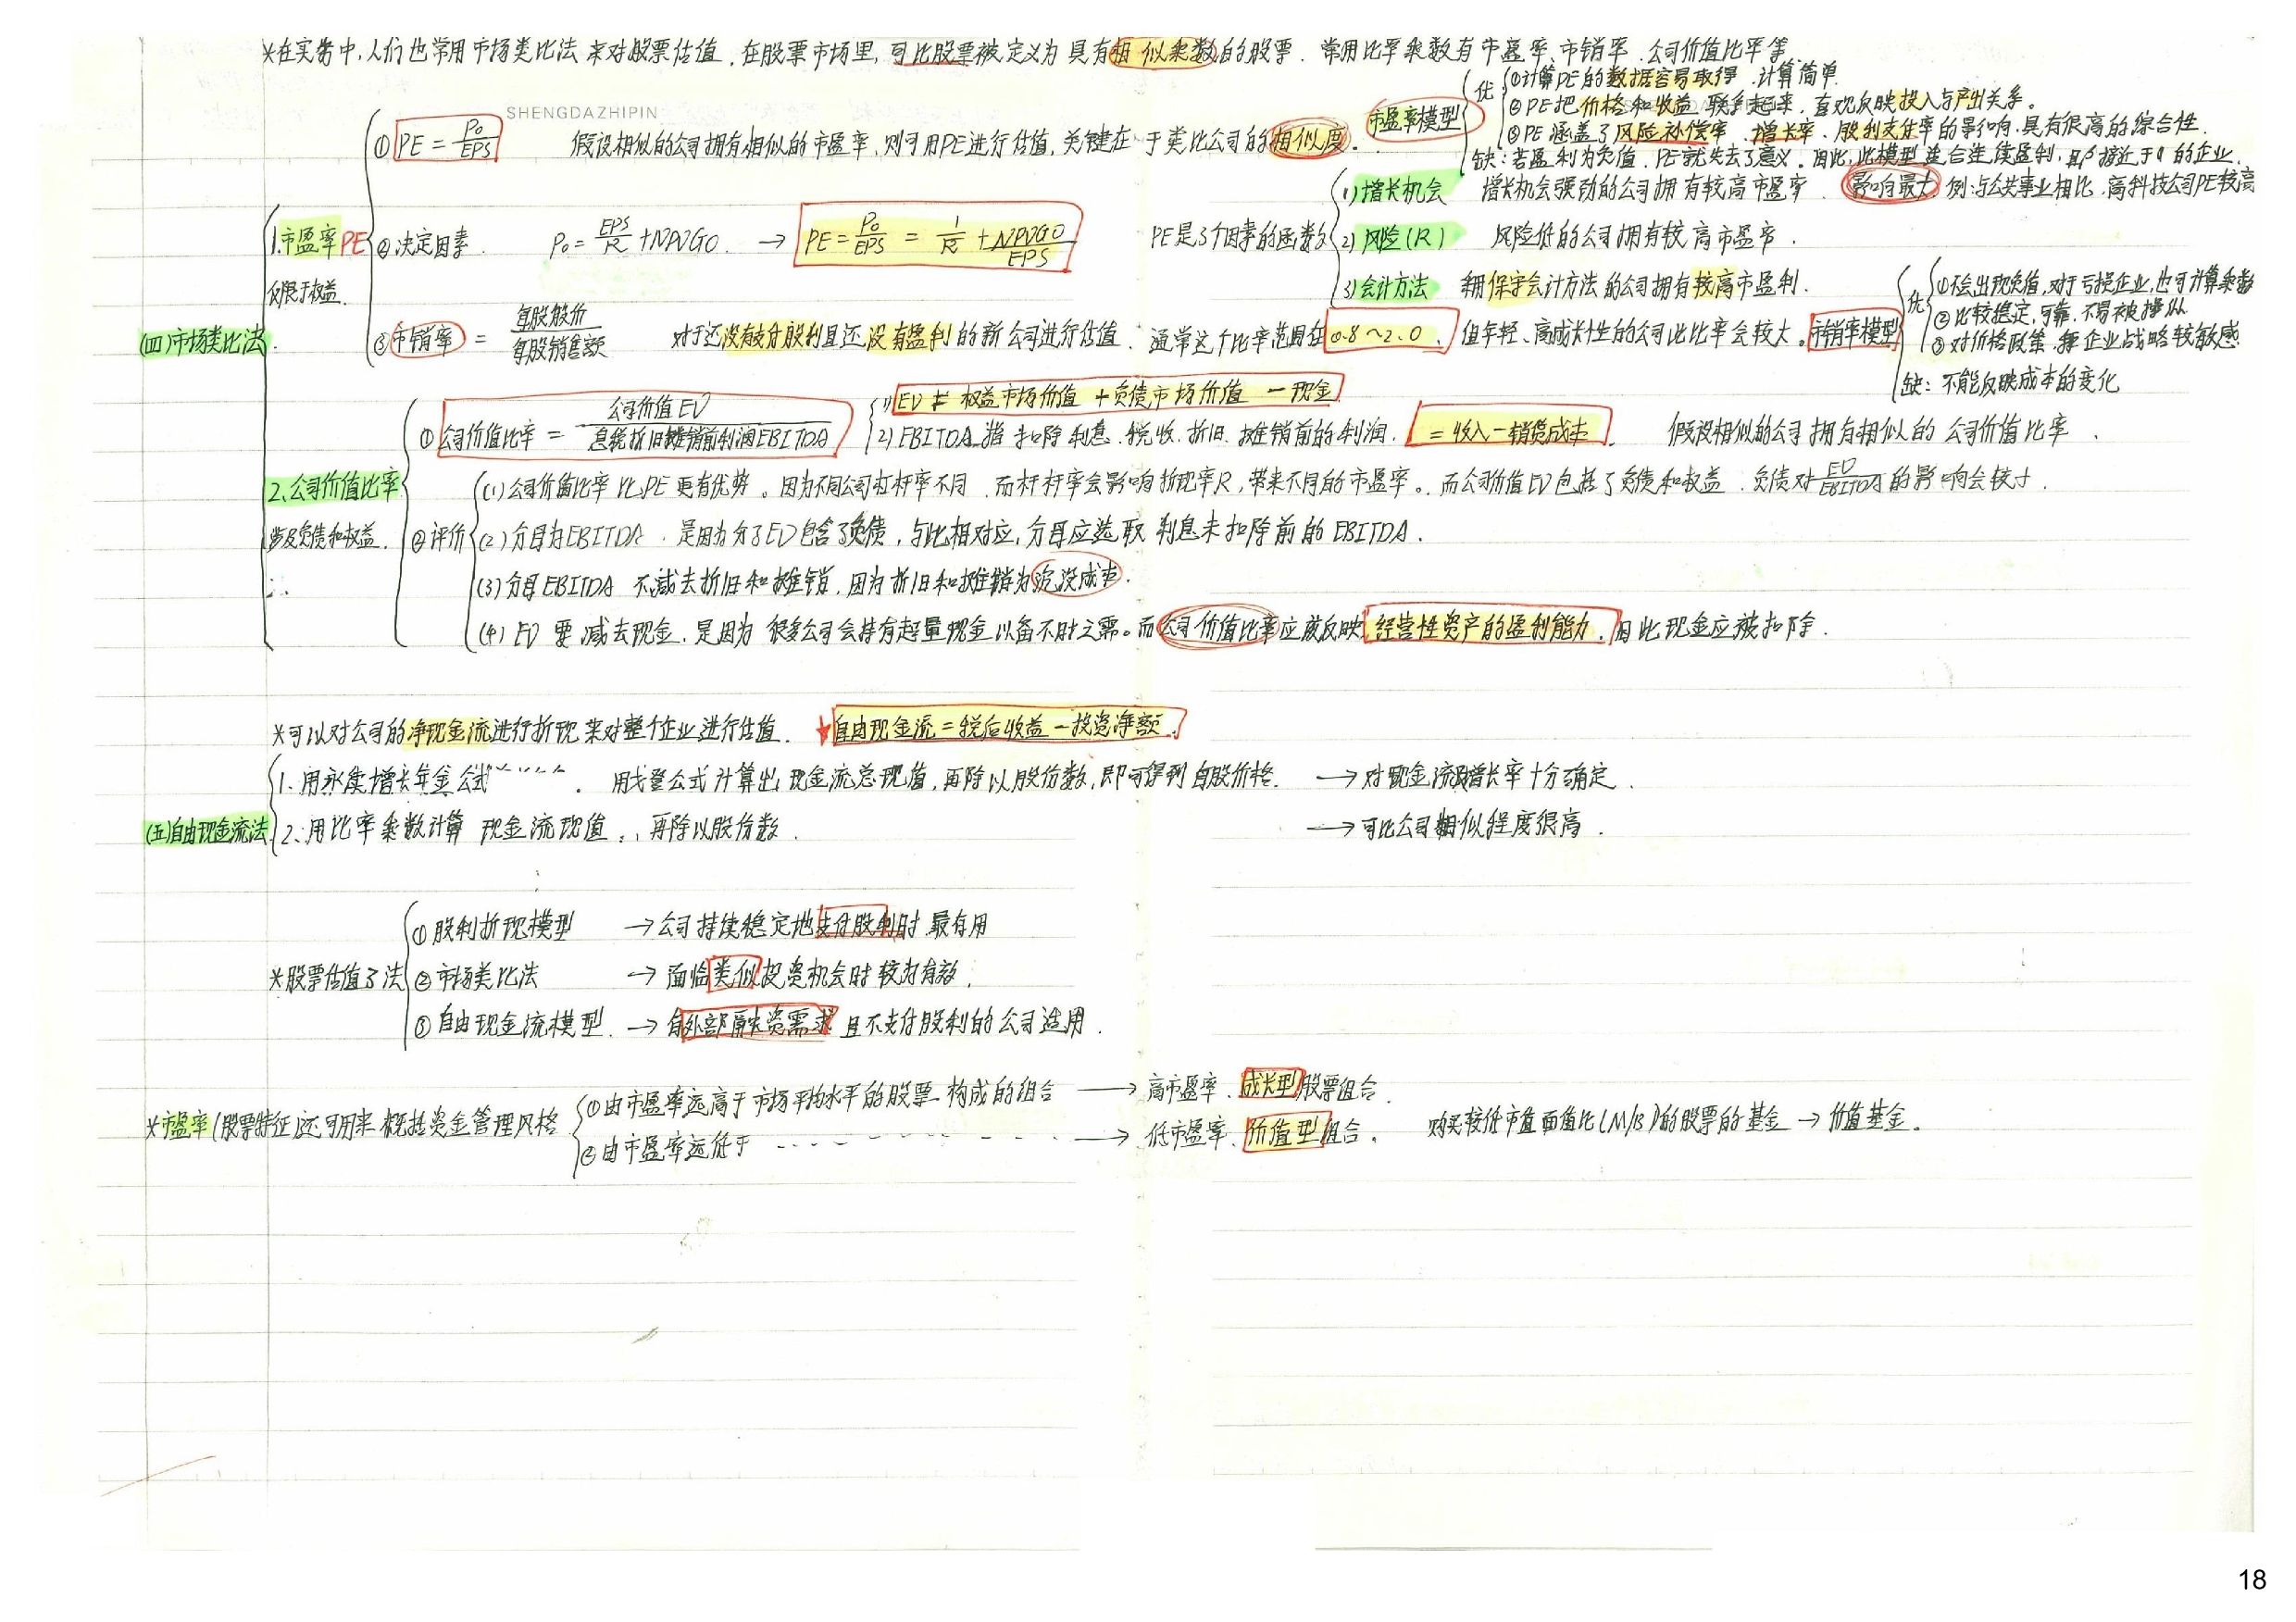 *在实务中,人们也常用市场类比法来对股票估值.在股票市场里,可比股票被定义为具有相似乘数的股票.常用比率乘数有市盈率、市销率、公司价值比率等
SHENGDAZHIPIN
(四)市场类比法
1.市盈率PE
仅限于权益.
① PE = P₀/EPS 假设相似的公司拥有相似的市盈率,则可用PE进行估值,关键在于类比公司的相似度.
市盈率模型
优 ①计算PE的数据容易取得.计算简单.
②PE把价格和收益联系起来.直观反映投入与产出关系。
③PE涵盖了风险补偿率、增长率、股利支付率的影响.具有很高的综合性.
缺:若盈利为负值.PE就失去了意义。因此,此模型适合连续盈利,且β接近于1的企业.
②决定因素. P₀ = EPS/R + NPVGO. → PE = P₀/EPS = 1/R + NPVGO/EPS
PE是3个因素的函数
1)增长机会 增长机会强劲的公司拥有较高市盈率. 影响最大 例:与公共事业相比.高科技公司PE较高
2)风险(R) 风险低的公司拥有较高市盈率.
3)会计方法 采用保守会计方法的公司拥有较高市盈利.
③市销率 = 每股股价/每股销售额 对于还没有支付股利且还没有盈利的新公司进行估值.通常这个比率范围在0.8~2.0.但年轻、高成长性的公司此比率会较大。
市销率模型
优 ①不会出现负值,对于亏损企业,也可计算乘数
②比较稳定,可靠.不易被操纵
③对价格政策、企业战略较敏感
缺:不能反映成本的变化
2.公司价值比率
涉及负债和权益.
① 公司价值比率 = 公司价值EV/息税折旧摊销前利润EBITDA
1)EV = 权益市场价值 + 负债市场价值 − 现金
2)EBITDA指扣除利息.税收.折旧.摊销前的利润. =收入−销货成本. 假设相似的公司拥有相似的公司价值比率.
②评价
(1)公司价值比率比PE更有优势。因为不同公司杠杆率不同.而杠杆率会影响折现率R,带来不同的市盈率。而公司价值EV包括了负债和权益.负债对EV/EBITDA的影响会较小.
(2)分母为EBITDA.是因为分子EV包含了负债,与此相对应,分母应选取利息未扣除前的EBITDA.
(3)分母EBITDA不减去折旧和摊销,因为折旧和摊销为沉没成本.
(4)EV要减去现金.是因为很多公司会持有超量现金以备不时之需。而公司价值比率应该反映经营性资产的盈利能力.因此现金应被扣除.
*可以对公司的净现金流进行折现来对整个企业进行估值. 自由现金流=税后收益−投资净额.
(五)自由现金流法
1.用永续增长年金公式. 用戈登公式计算出现金流总现值,再除以股份数,即可得到每股价格. →对现金流及增长率十分确定.
2.用比率乘数计算现金流现值.,再除以股份数. →可比公司相似程度很高.
*股票估值3法
①股利折现模型 →公司持续稳定地支付股利时最有用
②市场类比法 →面临类似投资机会时较为有效.
③自由现金流模型. →有外部融资需求且不支付股利的公司适用.
*市盈率(股票特征)还可用来概括资金管理风格
①由市盈率远高于市场平均水平的股票构成的组合 → 高市盈率、成长型股票组合.
②由市盈率远低于 - - - - - - → 低市盈率、价值型组合。 购买较低市值面值比(M/B)的股票的基金 → 价值基金。
18